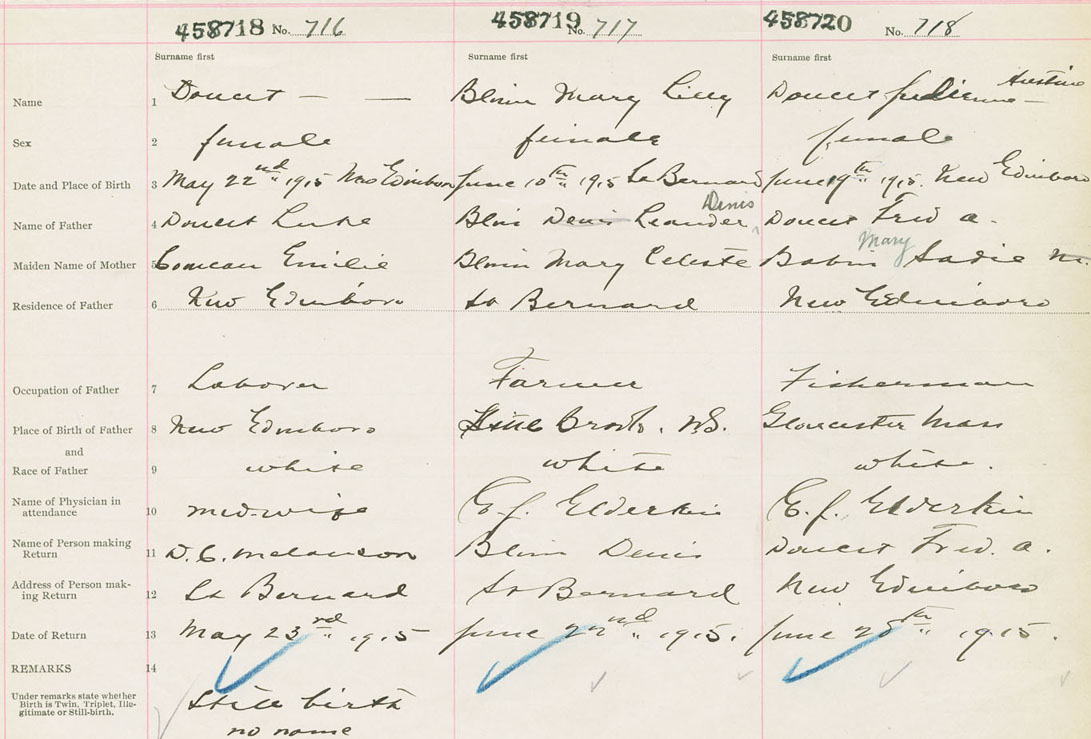 458718 No. 716 458719 No. 717 458720 No. 718
Surname first Surname first Surname first
Name 1 Doucet — — Blinn Mary Lucy Doucet Austine —
Sex 2 female female female
Date and Place of Birth 3 May 22nd 1915 New Edinboro June 10th 1915 St Bernard June 19th 1915. New Edinboro
Name of Father 4 Doucet Luke Blin Denis Leander Denis Doucet Fred A.
Maiden Name of Mother 5 Comeau Emilie Blinn Mary Celeste Babin Mary Sadie M.
Residence of Father 6 New Edinboro St Bernard New Edinboro
Occupation of Father 7 Laborer Farmer Fisherman
Place of Birth of Father 8 New Edinboro Little Brook. N.S. Gloucester Mass
and
Race of Father 9 white white white.
Name of Physician in
attendance 10 midwife E. J. Elderkin E. J. Elderkin
Name of Person making
Return 11 D. C. Melanson Blinn Denis Doucet Fred. A.
Address of Person mak-
ing Return 12 St Bernard St Bernard New Edinboro
Date of Return 13 May 23rd 1915 June 22nd 1915. June 28th 1915.
REMARKS 14
Under remarks state whether
Birth is Twin, Triplet, Ille-
gitimate or Still-birth.
Still birth
no name